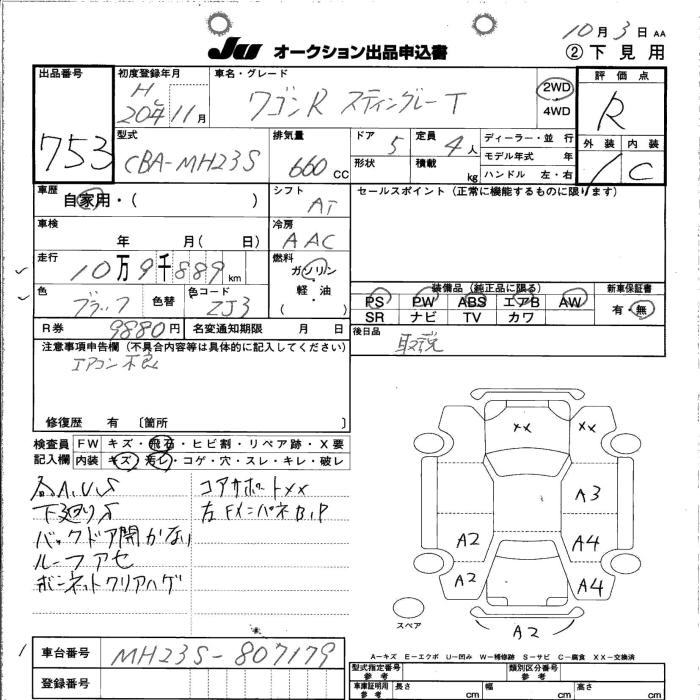 10月3日 AA
JU オークション出品申込書 ②下見用
出品番号 753
初度登録年月 H 20年11月
車名・グレード ワゴンR スティングレー T
2WD
4WD
評価点 R
外装 内装 C
型式 CBA-MH23S
排気量 660 CC
ドア 5
定員 4人
形状
積載 kg
ディーラー・並行
モデル年式 年
ハンドル 左・右
車歴 自家用・( )
シフト AT
セールスポイント(正常に機能するものに限ります)
車検 年 月( 日)
冷房 AAC
走行 10万9千889km
燃料 ガソリン
軽・油
( )
色 ブラック
色替
色コード ZJ3
装備品(純正品に限る)
PS PW ABS エアB AW
SR ナビ TV カワ
新車保証書
有・無
R券 9880円
名変通知期限 月 日
後日品 取説
注意事項申告欄(不具合内容等は具体的に記入してください)
エアコン不良
修復歴 有 〔箇所 〕
検査員記入欄
FW キズ・飛石・ヒビ割・リペア跡・X要
内装 キズ・汚レ・コゲ・穴・スレ・キレ・破レ
A,U,S
下廻りS
バックドア開かない
ルーフアセ
ボンネットクリアハゲ
コアサポートXX
XX XX
A3
A2 A4
A2 A4
A2
スペア
A－キズ E－エクボ U－凹み W－補修跡 S－サビ C－腐食 XX－交換済
車台番号 MH23S-807179
登録番号
型式指定番号 参考
類別区分番号 参考
車庫証明用 参考 長さ cm 幅 cm 高さ cm